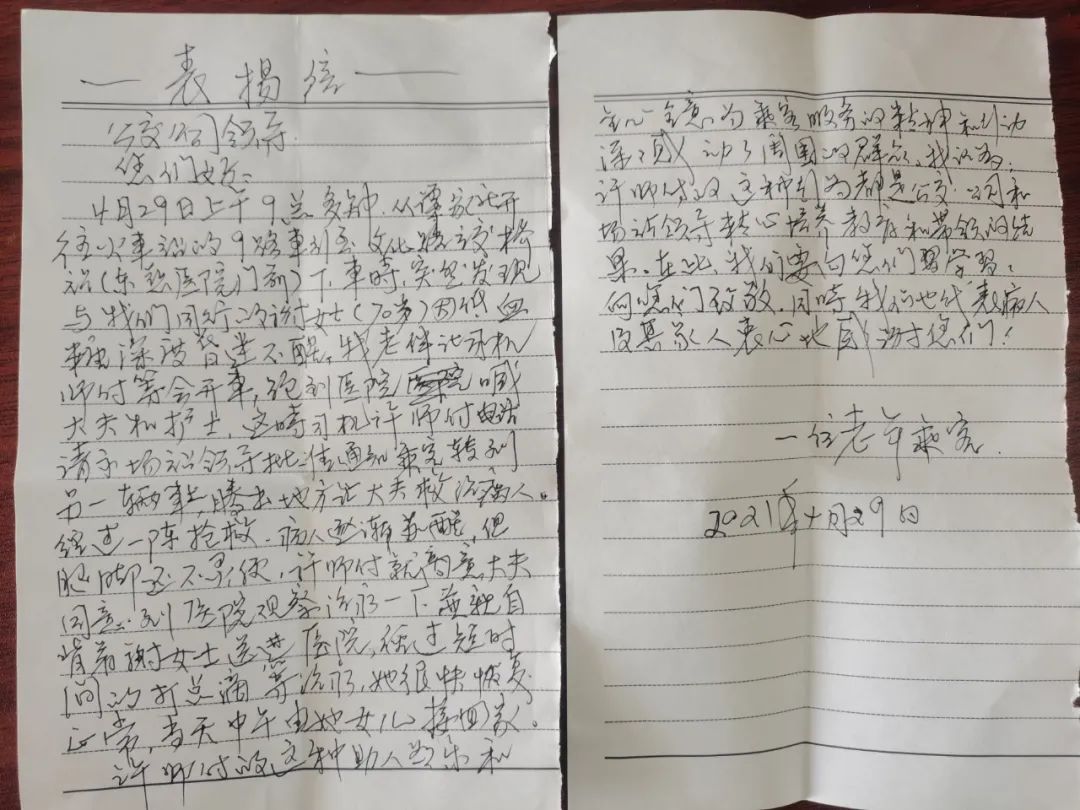 表扬信
公交公司领导:
您们好:
4月29日上午9点多钟,从谭家元开
往火车站的9路车到至文化路立交桥
站(东铁医院门前)下車時,突忽发现
与我们同行的谢女士(70岁)因低血
糖深度昏迷不醒,我老伴让司机
师付等会开車,跑到医院喊
大夫和护士,这時司机许师付电话
请示场站领导批准通知乘客转到
另一辆車上,腾出地方让大夫救治病人。
经过一阵抢救,病人逐渐苏醒,但
腿脚还不灵便,许师付就商意大夫
同意:到医院观察治疗一下并親自
背着谢女士送進医院,経过短时
间的打点滴等治疗,她很快恢复
正常,当天中午由她女儿接回家。
许师付的这种助人为乐和
全心全意为乘客服务的精神和行动
深深感动了周围的群众,我认为,
许师付的这种行为都是公交公司和
场站领导精心培养教育和带领的结
果。在此,我们要向您们学習,
向您们致敬,同時我们也代表病人
及其家人衷心地感谢您们!
一位老年乘客
2021年4月29日